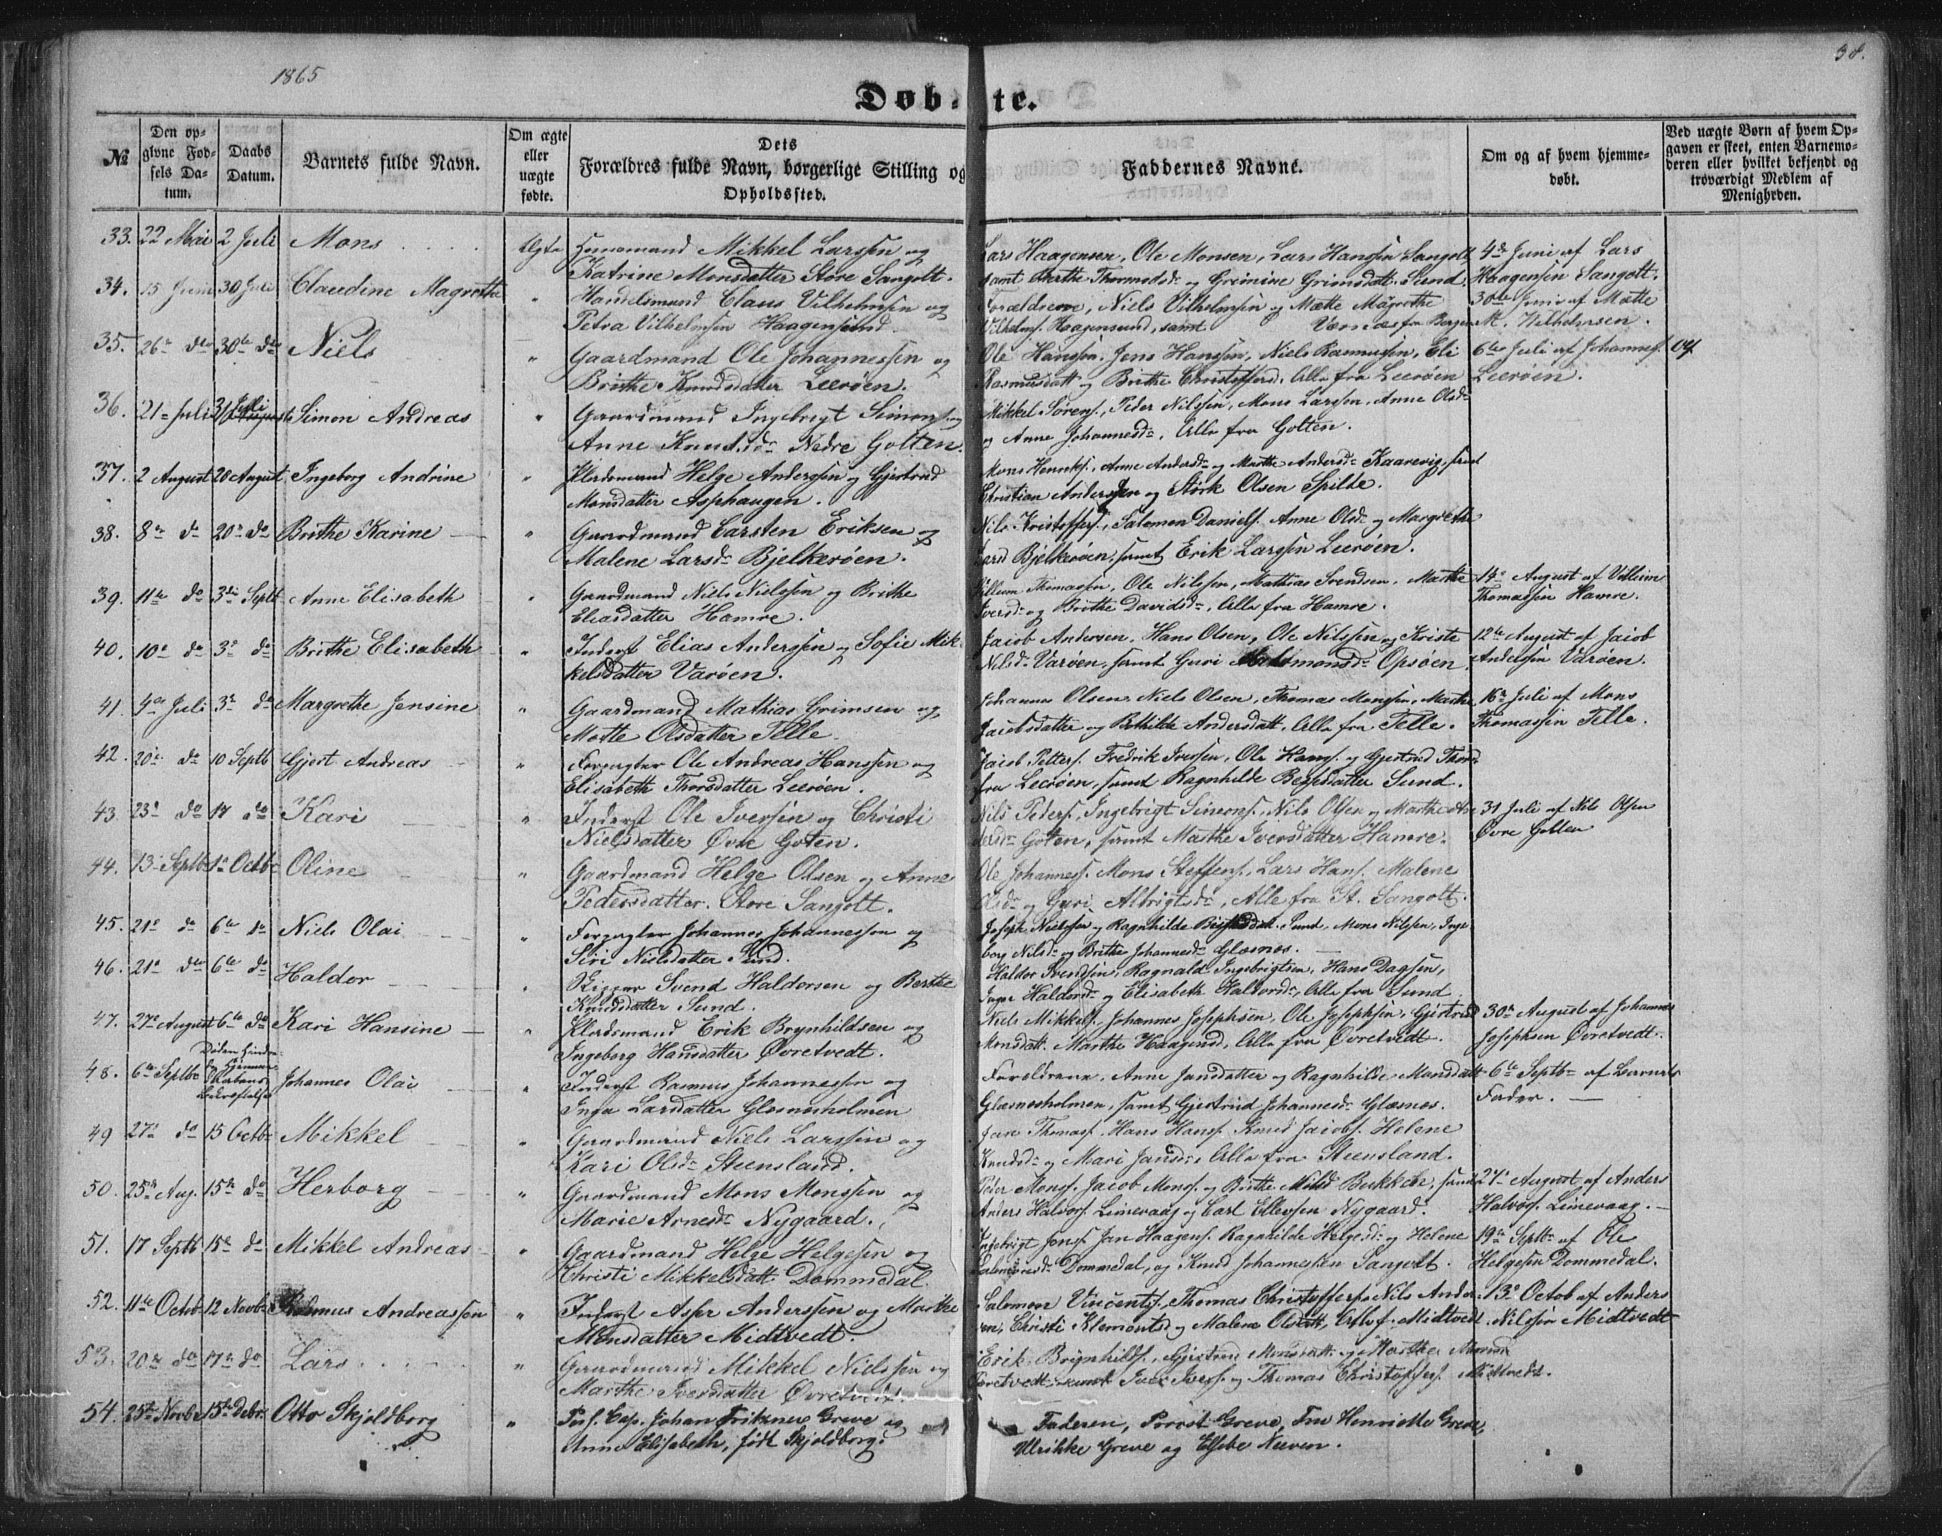 1865
38.
Døbte.
№
Den opgivne Fødsels Datum.
Daabs Datum.
Barnets fulde Navn.
Om ægte eller uægte fødte.
Dets Forældres fulde Navn, borgerlige Stilling og Opholdssted.
Faddernes Navne.
Om og af hvem hjemmedøbt.
Ved uægte Børn af hvem Opgaven er skeet, enten Barnemoderen eller hvilket bekjendt og troværdigt Medlem af Menigheden.
33. 22 Mai 2 Juli Mons Ægte Mikkel Larssen og Lars Haagensen, Ole Monsen, Lars Hanssen Sangolt 4de Juni af Lars
Katrine Monsdatter Store Sangolt. samt Berthe Thormodsd: og Gremine Grimsdatt. Sund. Haagensen Sangolt.
34. 15 Juni 30 Juli Claudine Magrethe " Handelsmand Claus Vilhelmsen og Forældrene, Niels Vilhelmsen og Mætte Magrethe 30te Juni af Mætte
Petra Vilhelmsen Haagensund. Vilhelms. Haagensund, samt fra Bergen M. Wilhelmsen.
35. 26de do 30te do Niels " Gaardmand Ole Johannessen og Ole Hanssen, Jens Hanssen, Niels Rasmussen, Eli 6te Juli af Johannes
Brithe Knudsdatter Leerøen. Rasmusdatt og Brithe Christoffersd, Alle fra Leerøen Leerøen.
36. 21 Juli Juli Simon Andreas " Gaardmand Ingebregt Simons. og Mikkel Sørens., Peder Nilssen, Mons Larssen, Anne Olsd:
Anne Knudsd: Nedre Golten. og Anne Johannesd:, Alle fra Golten.
37. 2 August 20 August Ingeborg Andrine " Pladsmand Helge Anderssen og Gjertrud Mons Henriks., Anne Andersd: og Marthe Andersd: Kaarevig, samt
Monsdatter Asphaugen. Christian Anderssen og Størk Olsen Spilde.
38. 8de do 20de do Brithe Karine " Gaardmand Carsten Eriksen og Nils Kristoffers., Salomon Daniels. Anne Olsd: og Margrethe
Malene Larsd: Bjelkerøen. Larsd Bjelkerøen, samt Erik Larssen Leerøen.
39. 11te do 3die Septb Anne Elisabeth " Gaardmand Niels Nielssen og Brithe Villum Thomassen, Ole Nilssen, Mathias Svendsen, Marthe 14de August af Villum
Eliasdatter Hamre. Iversd: og Brithe Davidsd:, Alle fra Hamre. Thomassen Hamre.
40. 10de do 3de do Brithe Elisabeth " Inderst Elias Anderssen og Sofie Mik- Jacob Andersen, Hans Olsen, Ole Nilssen og Kriste 12te August af Jacob
kelsdatter Varøen. Nilsd: Varøen, samt Guri Salomonsd: Opsøen. Anderssen Varøen.
41. 4de Juli 3de do Margrethe Jensine " Gaardmand Mathias Grimsen og Johannes Olsen, Niels Olsen, Thomas Monssen, Marthe 16de Juli af Mons
Mætte Olsdatter Telle. Jacobsdatter og Bothilde Andersdatt, Alle fra Telle. Thomassen Telle.
42. 20de do 10 Septb Gjert Andreas " Forpagter Ole Andreas Hanssen og Jacob Petters. Fredrik Iverssen, Ole Hans. og Gjertrud Thord
Elisabeth Thorsdatter Leerøen. fra Leerøen, samt Ragnhilde Sund.
43. 23de do 17 do Kari " Inderst Ole Iverssen og Christi Nils Peders., Ingebrigt Simons., Nils Olsen og Marthe 31 Juli af Nils Olsen
Nielsdatter Øvre Goten. Goten, samt Marthe Iversdatter Hamre. Øvre Golten
44. 13 Septb 1de Octbr Oline " Gaardmand Helge Olsen og Anne Ole Johannes. Mons Steffens. Lars Hans. Malene
Pedersdatter. Store Sangolt. Olsd: og Guri Albrigtsd:, Alle fra St. Sangolt.
45. 21de do 6te do Niels Olai " Forpagter Johannes Johannessen og Joseph Nielssen og Ragnhilde Sund, Mons Nilssen, Inge
Siri Nielsdatter Sund. borg Nilsd: og Brithe Johannesd: Glæsnes.
46. 21de do 6te do Haldor " Svend Haldorsen og Berthe Haldor Svendsen, Ragnald Ingebrigtsen, Hans Dagsen,
Knudsdatter Sund. Inger Haldorsd: og Elisabeth Halvorsd:, Alle fra Sund
47. 27de August 6te do Kari Hansine " Pladsmand Erik Brynhildsen og Niels Mikkels. Johannes Josephsen, Ole Josephsen, Gjertrud 30te August af Johannes
Ingeborg Hansdatter Øvretvedt. Monsdatt. Marthe Haagensd, Alle fra Øvretvedt. Josephsen Øvretvedt.
48. 6te Septbr Johannes Olai " Inderst Rasmus Johannessen og Forældrene, Anne Jansdatter og Ragnhilde Monsdatt 6te Septb: af Barnets
Inga Larsdatter Glæsnesholmen Glæsnesholmen, samt Gjertrud Johannesd: Glæsnes. Fader.
49 27de do 15 Octbr Mikkel " Gaardmand Niels Larssen og Jan Thomas. Hans Hans. Knud Jacobs. Helene
Kari Olsd: Steensland. Knudsd: og Mari Jansd:, Alle fra Steensland.
50. 25de Aug. 15de do Herborg " Gaardmand Mons Monssen og Peder Mons. Jacob Mons. og Brithe Nilsd samt 27de August af Anders
Marie Arnesd: Nygaard. Anders Halvors. Limevaag og Carl Ellevsen Nygaard. Halvors. Limevaag.
51. 17 Septb 15de do Mikkel Andreas " Gaardmand Helge Helgesen og Ingebrigt Jons. Jan Haagens. Ragnhilde Helgesd: og Helene 19de Septb: af Ole
Christi Mikkelsdatt: Dommedal. Dommedal, og Knud Johannessen Sangolt. Helgesen Dommedal.
52. 11te Octbr 12 Novbr Rasmus Andreassen " Inderst Asper Anderssen og Marthe Salomon Vincents., Thomas Christoffers. Nils Ander- 13de Octob af Anders
Monsdatter Midtvedt. sen, Christi Klementsd og Malene Olsdatt, Midtvedt. Nilssen Midtvedt
53. 20de do 17de do Lars " Gaardmand Mikkel Nielssen og Erik Brynhilds., Gjertrud Monsdatt og Marthe
Marthe Iversdatter Øvretvedt. Øvretvedt, samt Ivers. og Thomas Christoffers. Midtvedt.
54. 25de Novbr 15de Debr. Otto Skjoldborg " Cap. Johan Fritzner Greve og Faderen, Provst Greve, Fru Henriette Greve,
Anne Elisabeth, født Skjoldborg. Ulrikke Greve og Elsebe Neeven.